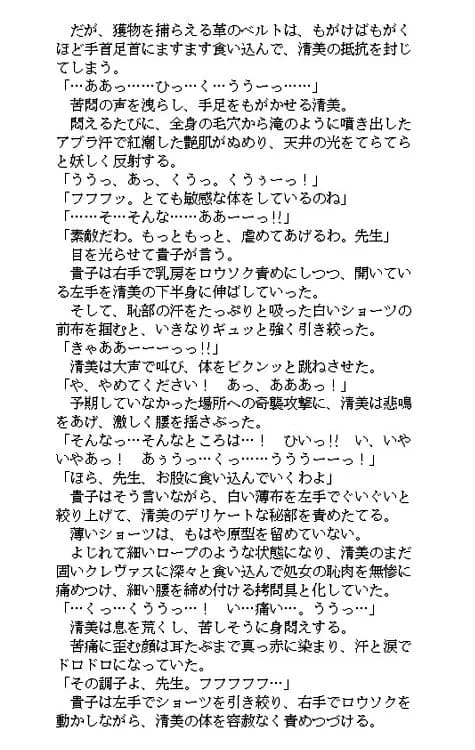 だが、獲物を捕らえる革のベルトは、もがけばもがく
ほど手首足首にますます食い込んで、清美の抵抗を封じ
てしまう。
「…ああっ……ひっ…く…ううーっ……」
苦悶の声を洩らし、手足をもがかせる清美。
悶えるたびに、全身の毛穴から滝のように噴き出した
アブラ汗で紅潮した艶肌がぬめり、天井の光をてらてら
と妖しく反射する。
「ううっ、あっ、くうっ。くうぅーっ！」
「フフフッ。とても敏感な体をしているのね」
「……そ…そんな……ああーーっ!!」
「素敵だわ。もっともっと、虐めてあげるわ。先生」
目を光らせて貴子が言う。
貴子は右手で乳房をロウソク責めにしつつ、開いてい
る左手を清美の下半身に伸ばしていった。
そして、恥部の汗をたっぷりと吸った白いショーツの
前布を掴むと、いきなりギュッと強く引き絞った。
「きゃああーーーっっ!!」
清美は大声で叫び、体をビクンッと跳ねさせた。
「や、やめてください！　あっ、あああっ！」
予期していなかった場所への奇襲攻撃に、清美は悲鳴
をあげ、激しく腰を揺さぶった。
「そんなっ…そんなところは…！　ひいっ!!　い、いや
いやあっ！　あぅうっ…くっ……うううーーっ！」
「ほら、先生、お股に食い込んでいくわよ」
貴子はそう言いながら、白い薄布を左手でぐいぐいと
絞り上げて、清美のデリケートな秘部を責めたてる。
薄いショーツは、もはや原型を留めていない。
よじれて細いロープのような状態になり、清美のまだ
固いクレヴァスに深々と食い込んで処女の恥肉を無惨に
痛めつけ、細い腰を締め付ける拷問具と化していた。
「…くっ…くううっ…！　い…痛い…。ううっ…」
清美は息を荒くし、苦しそうに身悶えする。
苦痛に歪む顔は耳たぶまで真っ赤に染まり、汗と涙で
ドロドロになっていた。
「その調子よ、先生。フフフフフ…」
貴子は左手でショーツを引き絞り、右手でロウソクを
動かしながら、清美の体を容赦なく責めつづける。